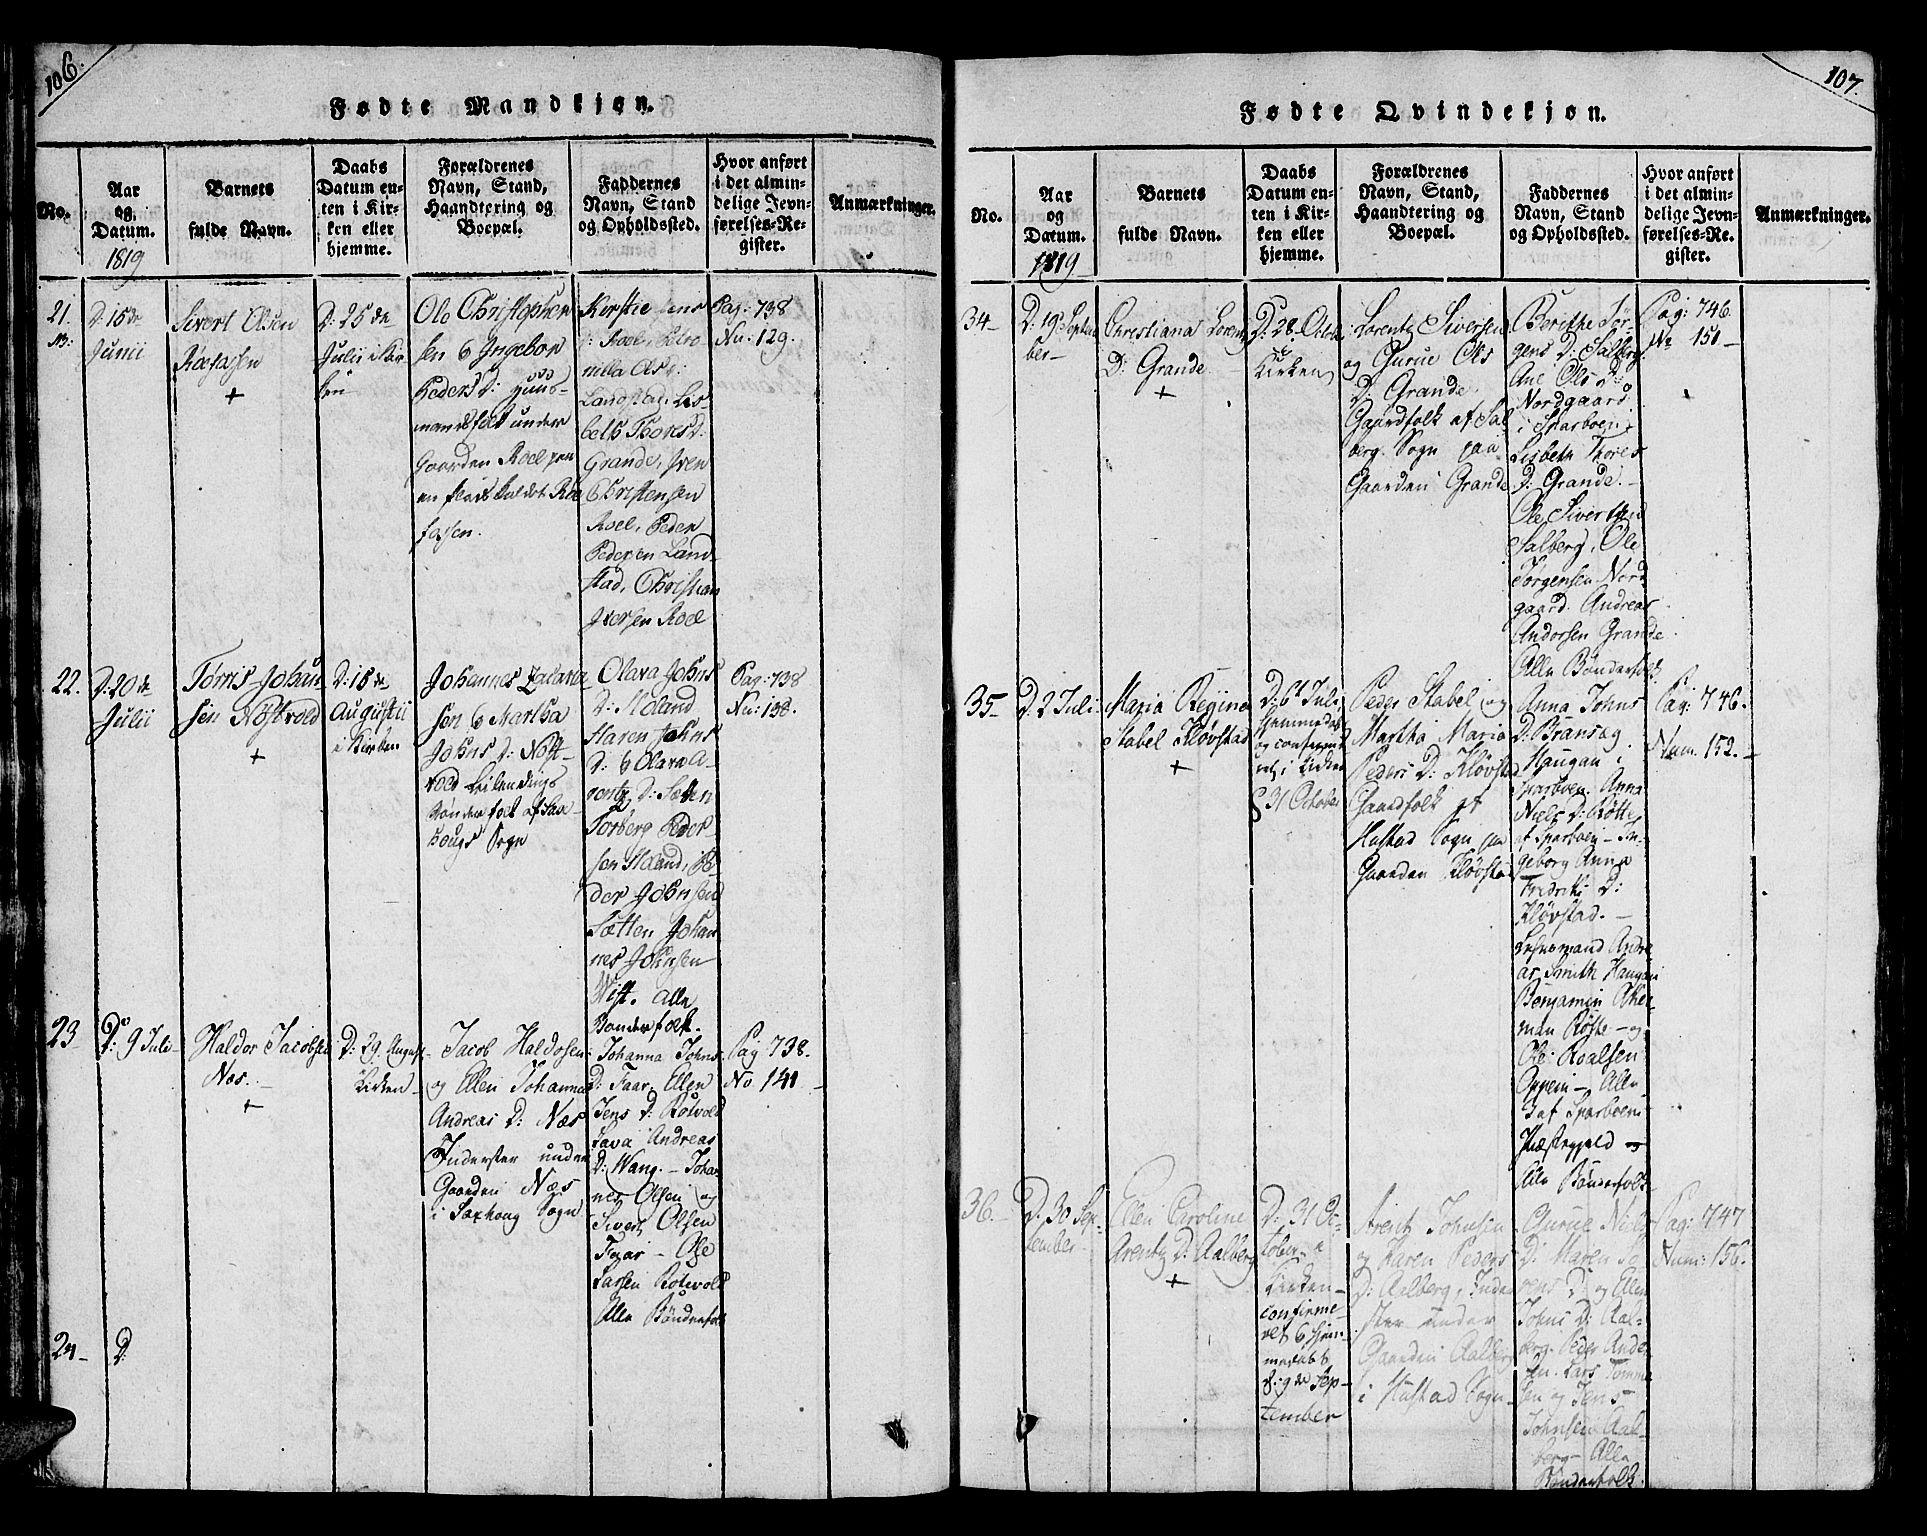 106.
Fødte Mandkjøn.
No.
Aar
og
Datum.
1819
Barnets
fulde Navn.
Daabs
Datum en-
ten i Kir-
ken eller
hjemme.
Forældrenes
Navn, Stand,
Haandtering og
Boepæl.
Faddernes
Navn, Stand
og Opholdssted.
Hvor anført
i det almin-
delige Jevn-
førelses-Re-
gister.
Anmærkninger.
21.
D: 15de
Junii
Sivert Olsen
+
D: 25 de
Julii i Kir-
ken
Ole Christopher
sen & Ingebor
Peders D: Huus-
mandsfolk under
Gaarden Roel paa
Kerstie
Roel, Petro-
nilla Ols
Landstad, Lis-
beth Thores D:
Grande, Iver
Christensen
Roel, Peder
Pedersen Land-
stad, Christian
Iversen Roel
Pag: 738
Nu: 129.
22.
D: 20 de
Julii
Tørris Johan-
sen
+
D: 15 de
Augustii
i Kirken
Johannes
sen & Martha
Johns D:
vold Leilendings
Bønderfolk af Sax-
hougs Sogn
Olava Johns
D: Holand
Haren Johns
D: & Olava A-
rentz D: Sætten
Torberg Peder-
sen Holand, Pe-
der Johnsen
Sætten Johan-
nes Johnsen
Wist. Alle
Bønderfolk.
Pag: 738
Nu: 138.
23
D: 9 Juli
Haldor Jacobsen
Næs.
+
D: 29. August
Kirken
Jacob Haldosen
og Ellen Johanna
Andreas D: Næs
Inderster under
Gaarden Næs
i Saxhoug Sogn
Johanna Johns
D: Faar, Ellen
Jens D: Rotvold
Andreas
D: Wang. Johan-
nes Olsen og
Sivert Olsen
Ole
Larsen Rotvold
Alle Bønderfolk
Pag 738.
No 141
24
D:
107.
Fødte Qvindekjøn.
No.
Aar
og
Datum.
1819
Barnets
fulde Navn.
Daabs
Datum en-
ten i Kir-
ken eller
hjemme.
Forældrenes
Navn, Stand,
Haandtering og
Boepæl.
Faddernes
Navn, Stand
og Opholdssted.
Hvor anført
i det almin-
delige Jevn-
førelses-Re-
gister.
Anmærkninger.
34
D: 19 Septem
ber
Christiana Lorentz
D: Grande
+
D: 28.
Kirken
Lorentz Siversen
og Gurue Ols
D: Grande.
Gaardfolk af Sal
berg Sogn paa
Gaarden Grande
Berithe Jør-
gens D: Salberg
Ane Ols D:
Nordgaard
i Sparboen
Lisbeth Thores
D: Grande.
Ole Sivertsen
Salberg, Ole
Jørgensen Nord
gaard. Andreas
Andorsen Grande
Alle Bønderfolk
Pag: 746.
No 151
35
D: 2 Juli
Maria Regina
Stabel Kløvstad
+
D: 6t Juli
hjemmedøbt
og confirme
ret i Kirken
D 31 October
Peder Stabel og
Martha Maria
Peders D: Kløvstad
Gaardfolk af
Hustad Sogn paa
Gaarden Kløvstad
Anna Johns
D: Bransag
Haugan i
Sparboen. Anna
Niels D: Røtte
af Sparboen In-
geborg Anna
Fredriks D:
Kløvstad.
Lehnsmand Andre
as Smith Haugan
Benjamin
man Røste og
Ole Roalsen
Oppem. Alle
3 af Sparboens
Præstegield og
Alle Bønderfolk
Pag: 746.
Num. 152.
36.
D: 30 Sep-
tember
Ellen Caroline
Arentz D: Aalberg
+
D: 31 Oc-
tober
Kirken
confirme-
ret & hjem-
medøbt
D: 9 de Sep-
tember
Arentz Johnsen
og Karen Peders
D: Aalberg, Inder
ster under
Gaarden Aalberg
i Hustad Sogn
Gurue Niels
D: Maren
D: og Ellen
Johns D: Aal-
berg. Peder Ande
sen. Lars Tomme
sen og Jens
Johnsen Aal-
berg Alle
Bønderfolk.
Pag: 747
Num: 156.